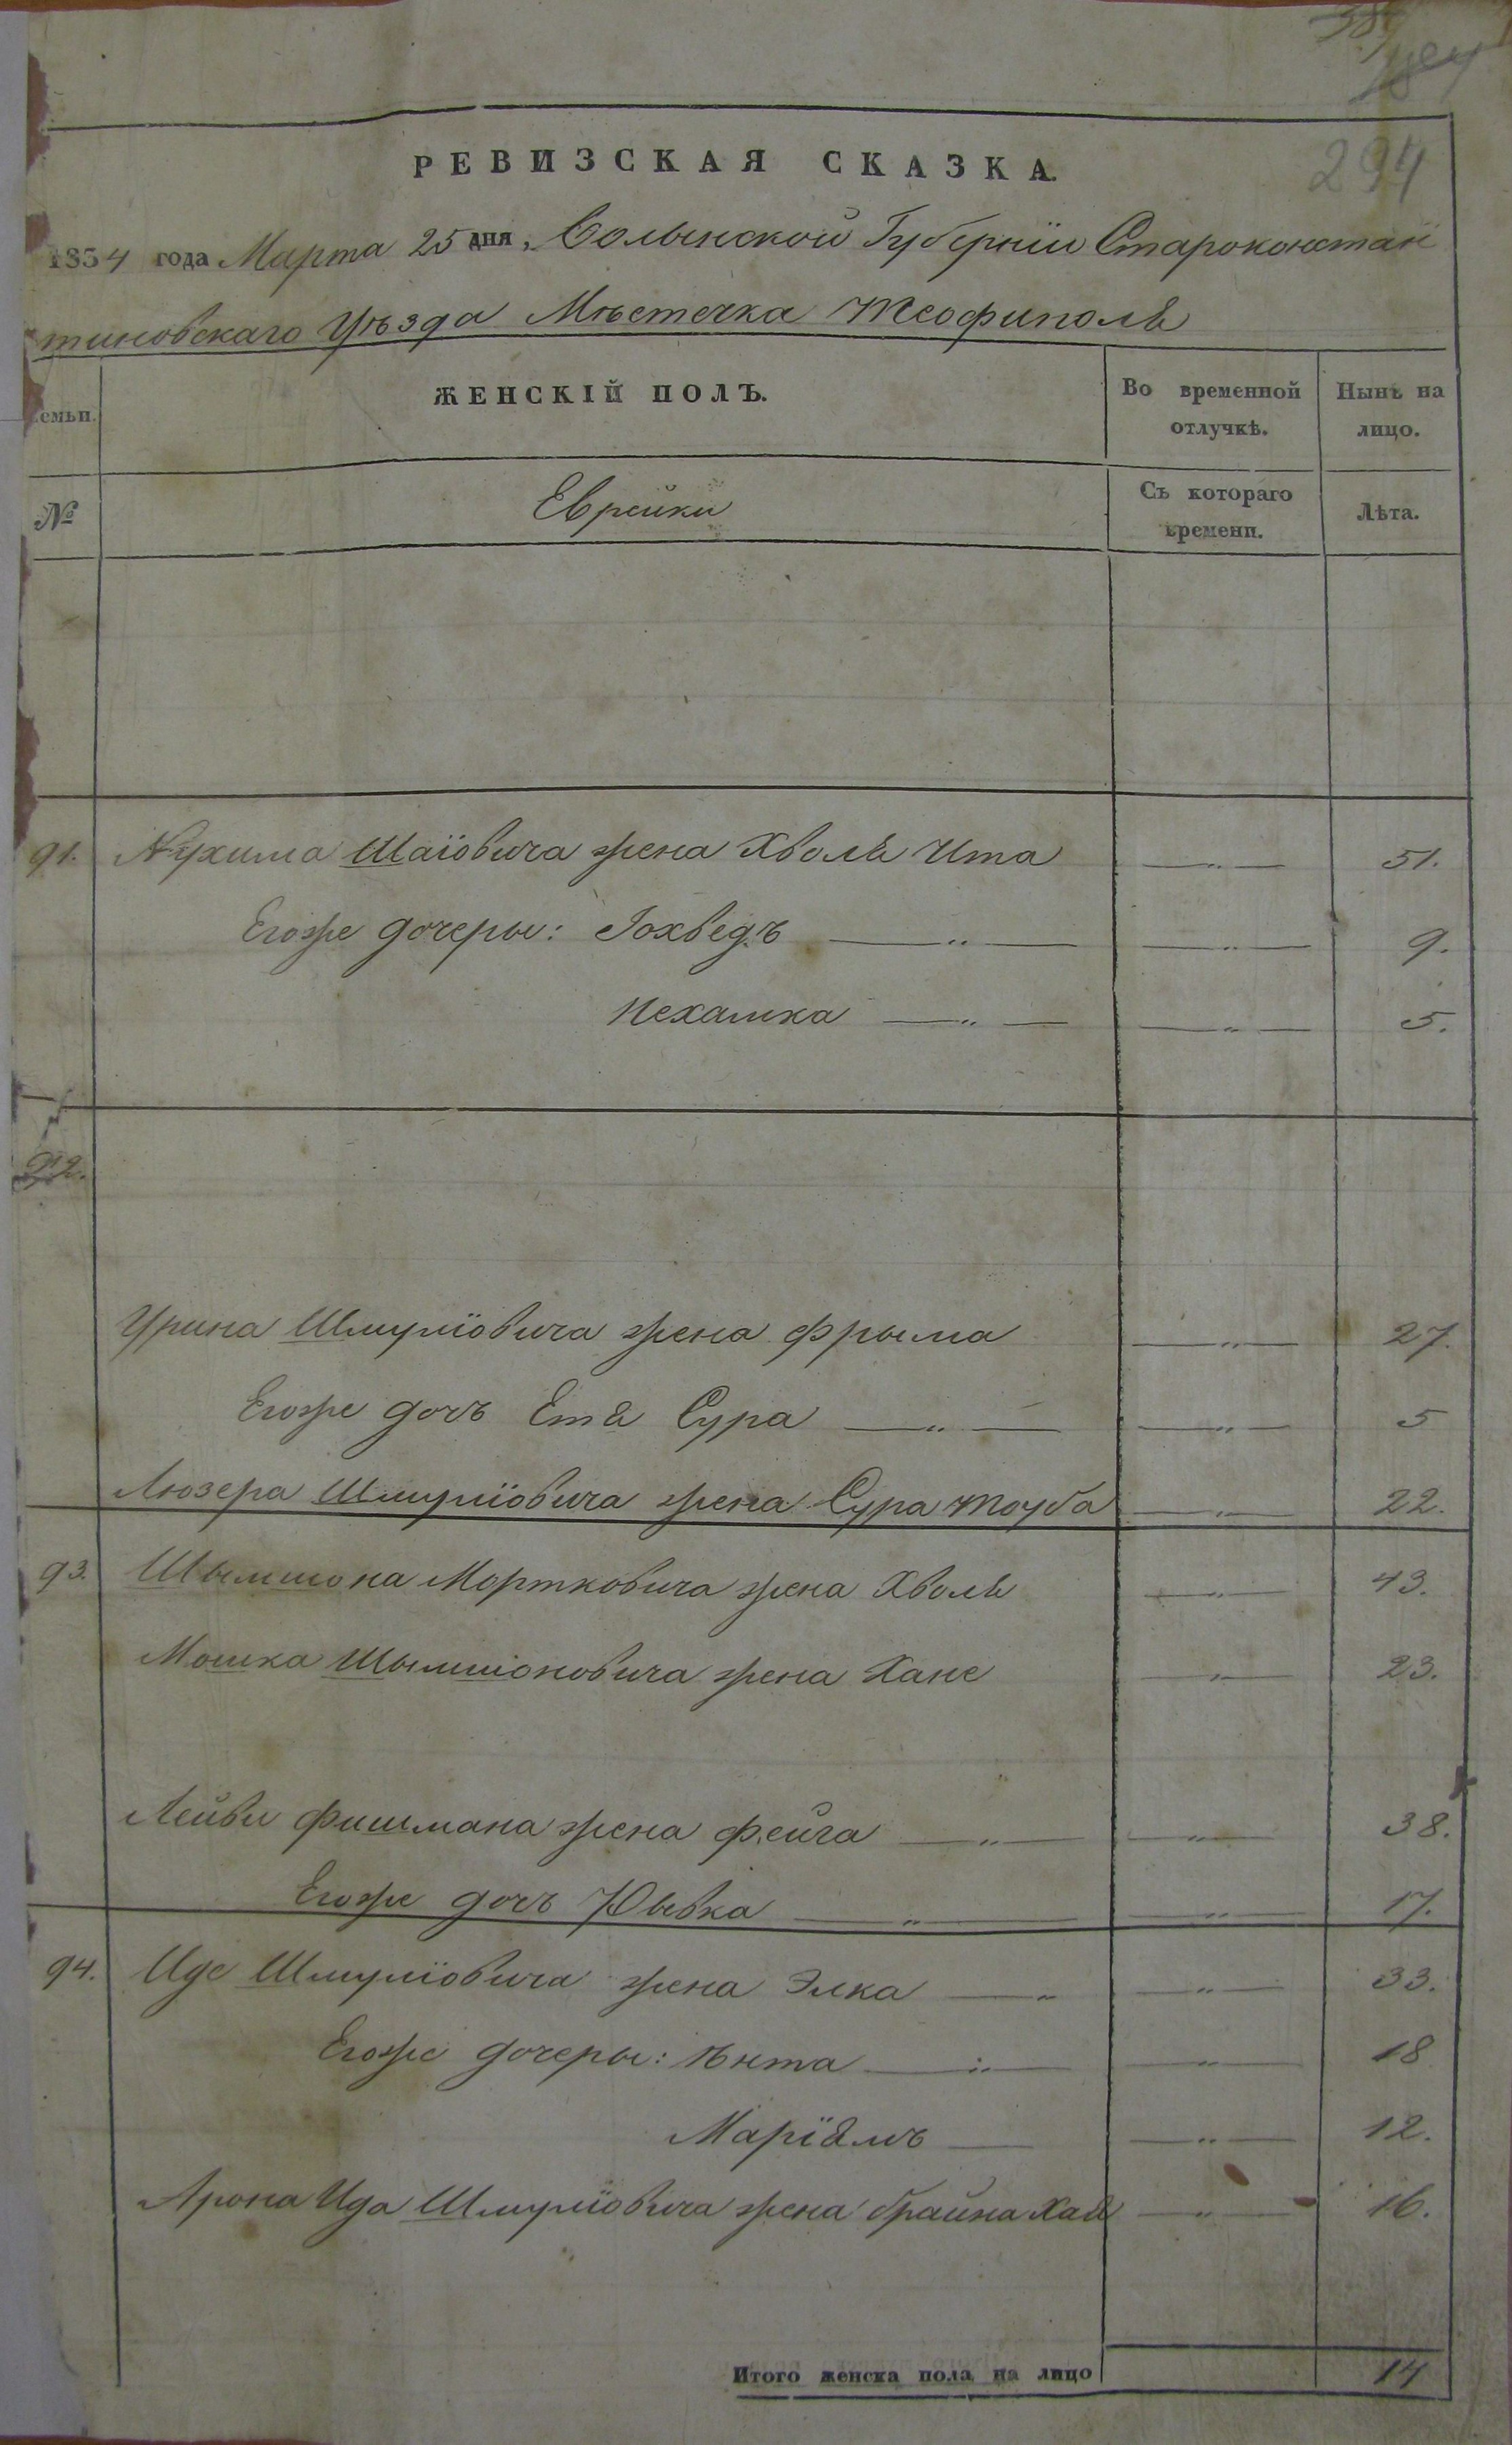 294
РЕВИЗСКАЯ СКАЗКА.
1854 года Марта 25 дня, Волынской Губерніи Староконстан
тиновскаго Уѣзда Мѣстечка Теофиполя
семьи.
ЖЕНСКІЙ ПОЛЪ.
Во временной отлучкѣ.
Нынѣ на лицо.
№
Еврейки
Съ котораго времени.
Лѣта.
91. Нухима Шаіовича жена Хволя Ита —„— 51.
Егоже дочеры: Іохведъ —„— —„— 9.
Нехамка —„— —„— 5.
92.
Урина Шмуліовича жена Фрыма —„— 27.
Егоже дочъ Етя Сура —„— —„— 5
Люзера Шмуліовича жена Сура Тоуба —„— 22.
93. Шымшона Мортковича жена Хволя —„— 43.
Мошка Шымшоновича жена Хане —„— 23.
Лейби Фишмана жена Фейга —„— —„— 38.
Егоже дочъ Юывка —„— —„— 17.
94. Иде Шмуліовича жена Элка —„ —„— 33.
Егоже дочеры: Ѣнта —„— —„— 18
Маріямъ — —„— 12.
Арона Ида Шмуліовича жена Брайна Хая —„— 16.
Итого женска пола на лицо 14